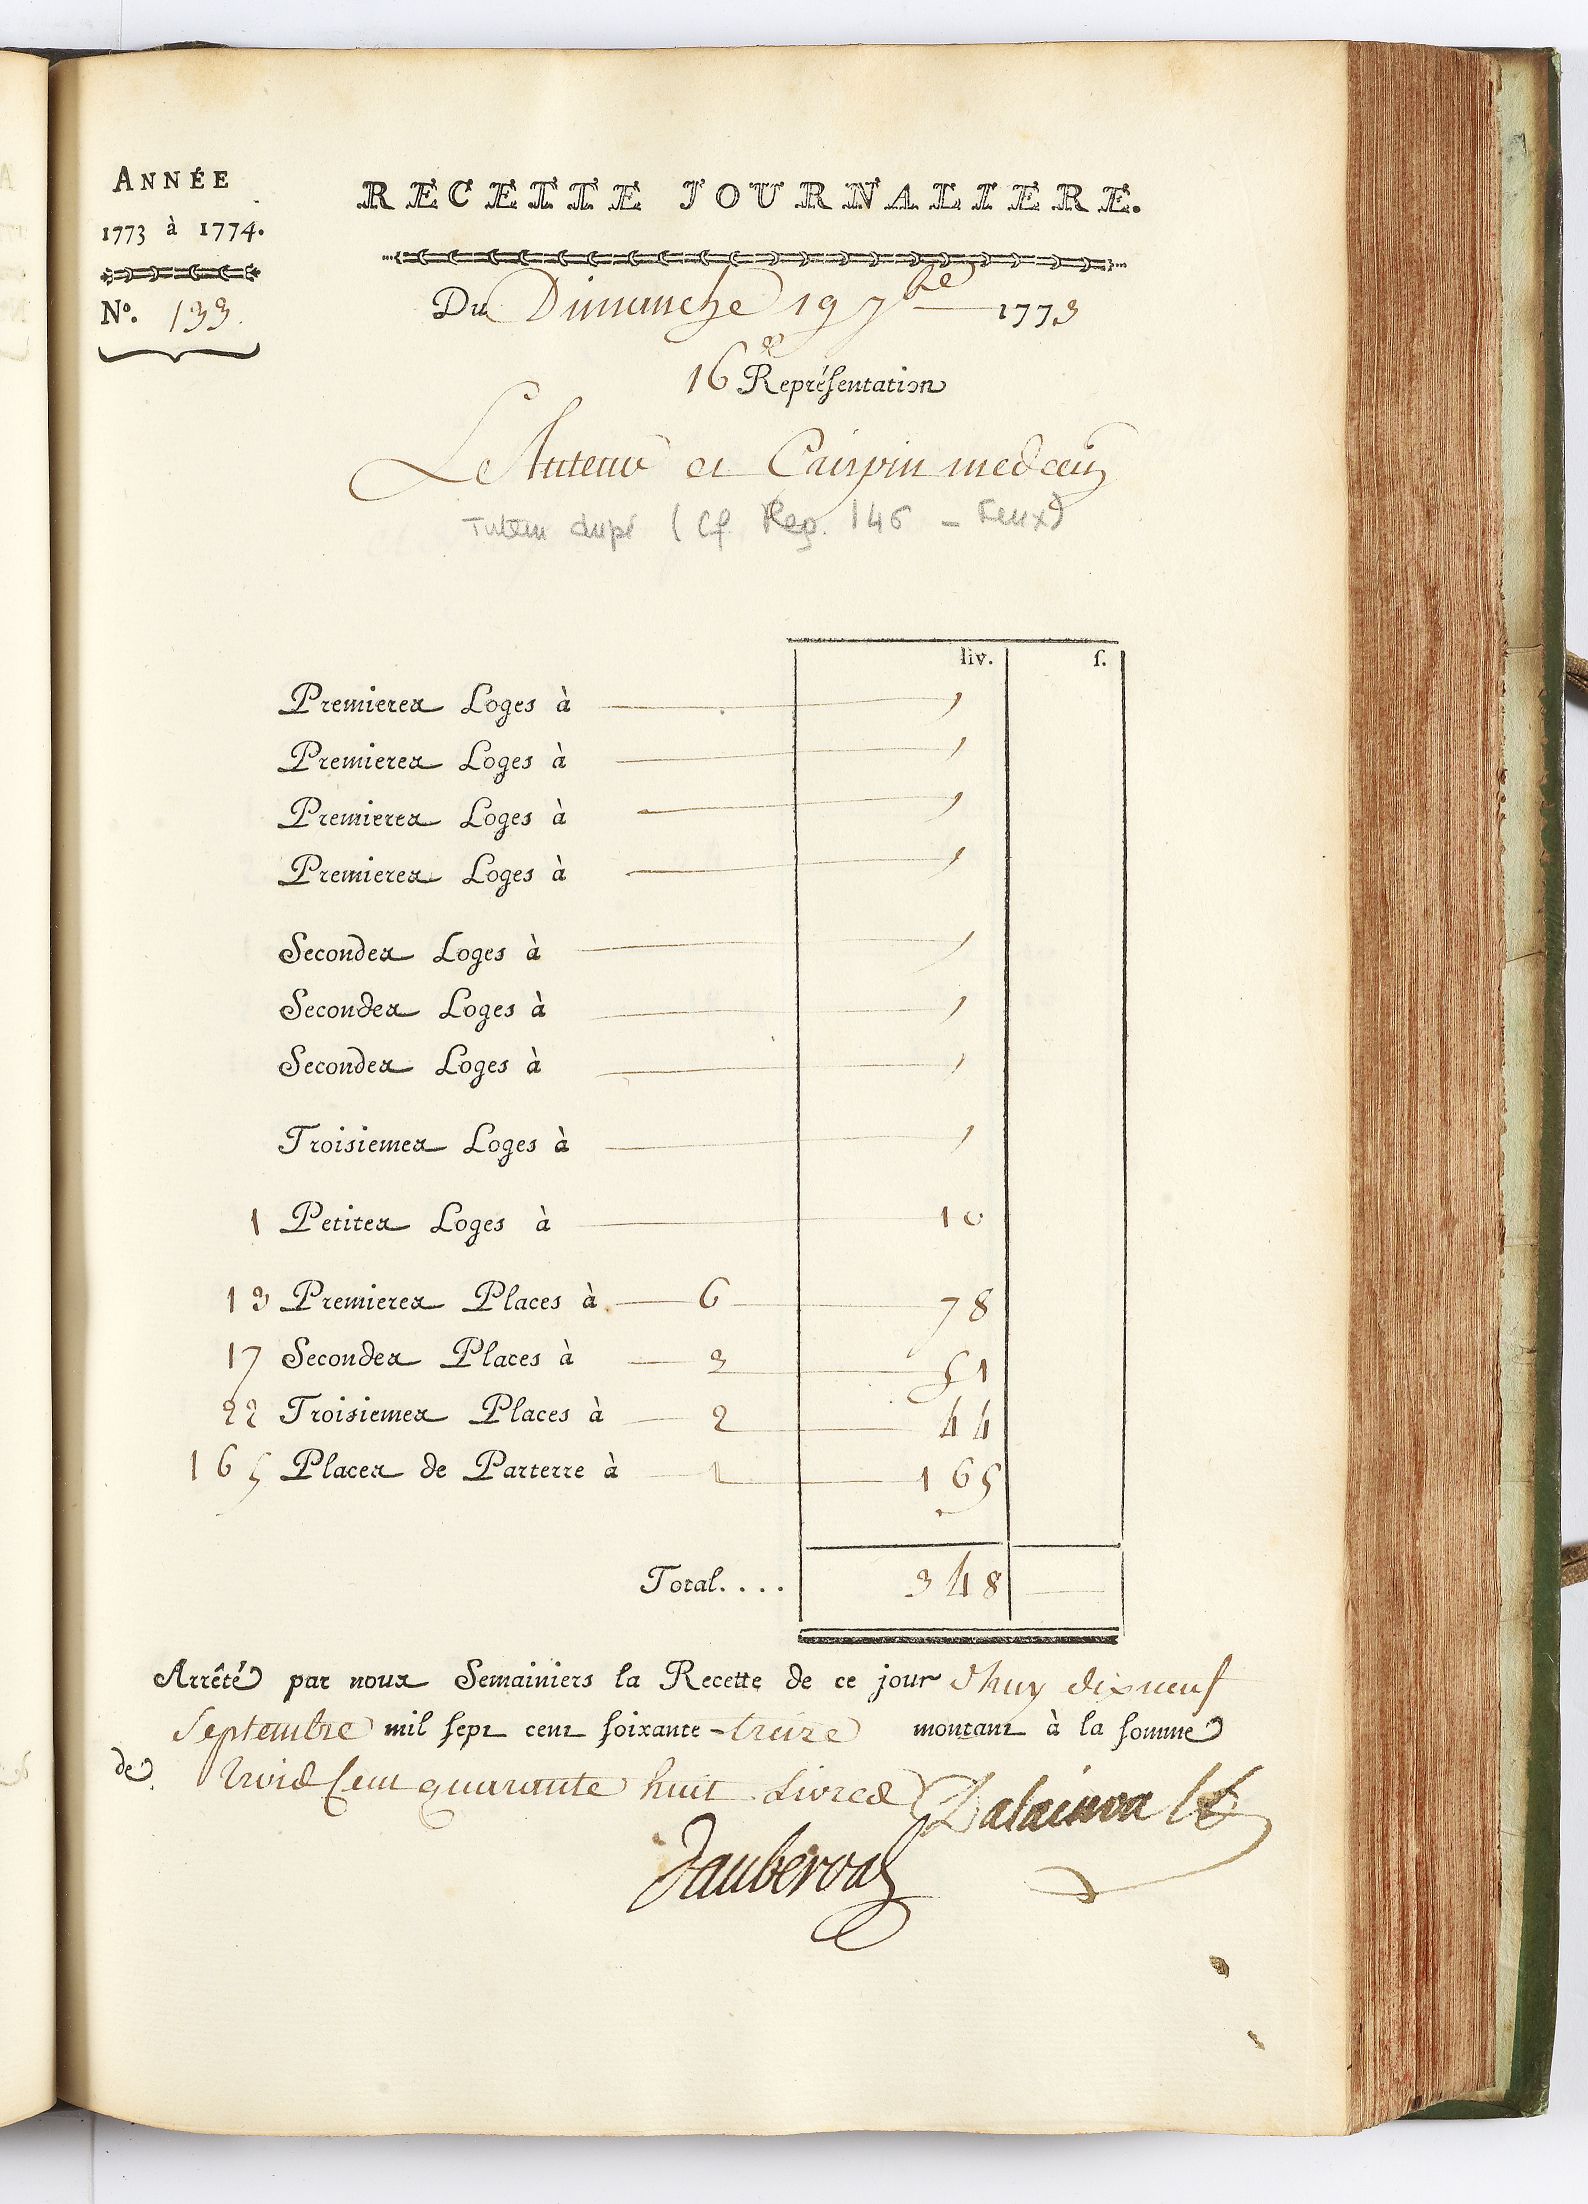 ANNÉE
1773 à 1774.
Nº. 133.
RECETTE JOURNALIERE.
Du Dimanche 19 7bre 1773
16e Représentation
Le Tuteur et Crispin medecin
Tuteur dupé (Cf. Reg. 146 - Feux)
liv. s.
Premieres Loges à
Premieres Loges à
Premieres Loges à
Premieres Loges à
Secondes Loges à
Secondes Loges à
Secondes Loges à
Troisiemes Loges à
1 Petites Loges à 10
13 Premieres Places à 6 78
17 Secondes Places à 3 51
22 Troisiemes Places à 2 44
165 Places de Parterre à 1 165
Total.... 348
Arrêté par nous Semainiers la Recette de ce jour d'huy dix neuf
Septembre mil sept cent soixante-treize montant à la somme
de trois cent quarante huit Livres
Dalainval
Dauberval